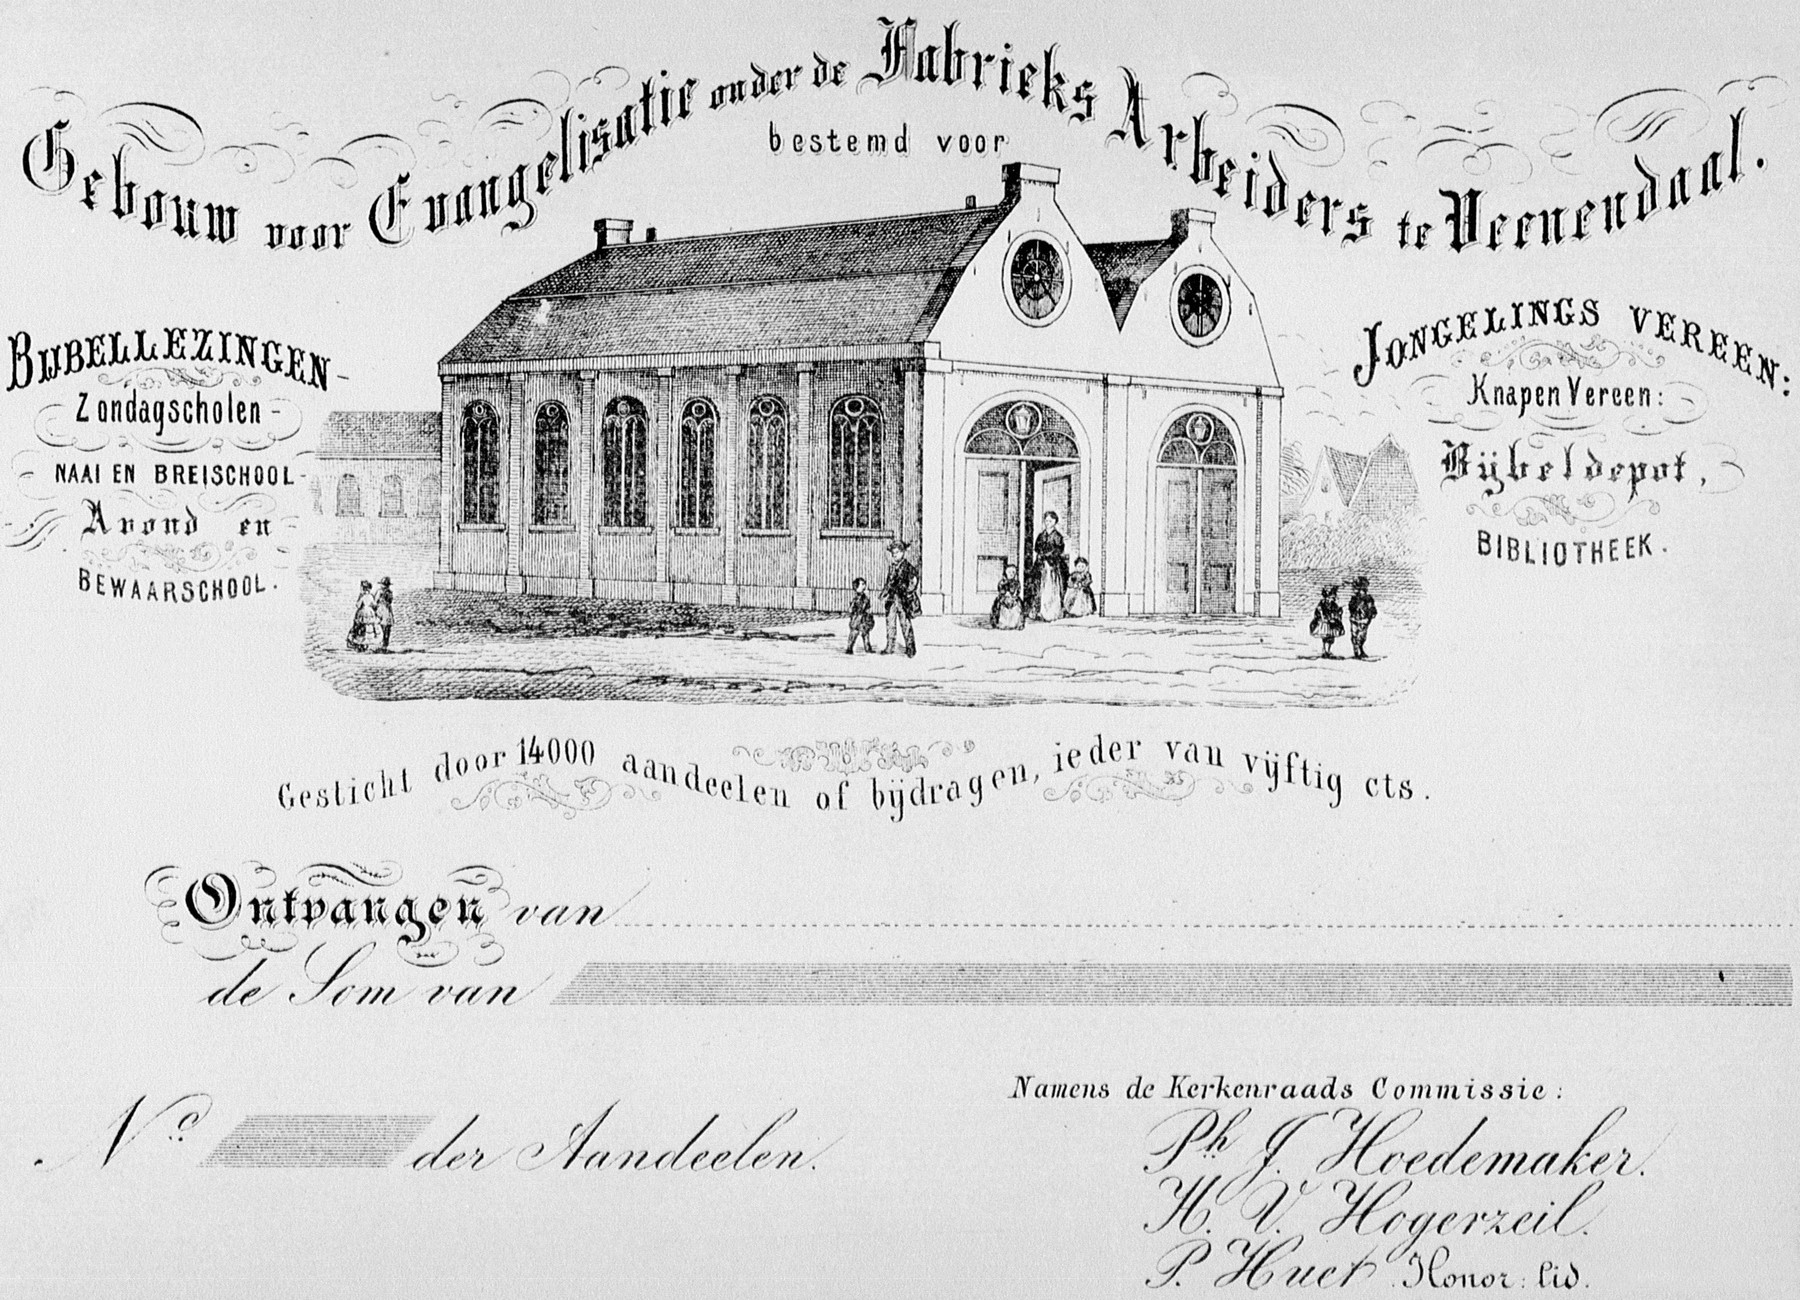 Gebouw voor Evangelisatie onder de Fabrieks Arbeiders te Veenendaal.
bestemd voor
BIJBELLEZINGEN-
Zondagscholen-
NAAI EN BREISCHOOL-
Avond en
BEWAARSCHOOL.
JONGELINGS VEREEN:
Knapen Vereen:
Bijbeldepot,
BIBLIOTHEEK.
Gesticht door 14000 aandeelen of bijdragen, ieder van vijftig cts.
Ontvangen van
de Som van
No. der Aandeelen.
Namens de Kerkenraads Commissie:
Ph. J. Hoedemaker.
H. V. Hogerzeil.
P. Huet. Honor: lid.